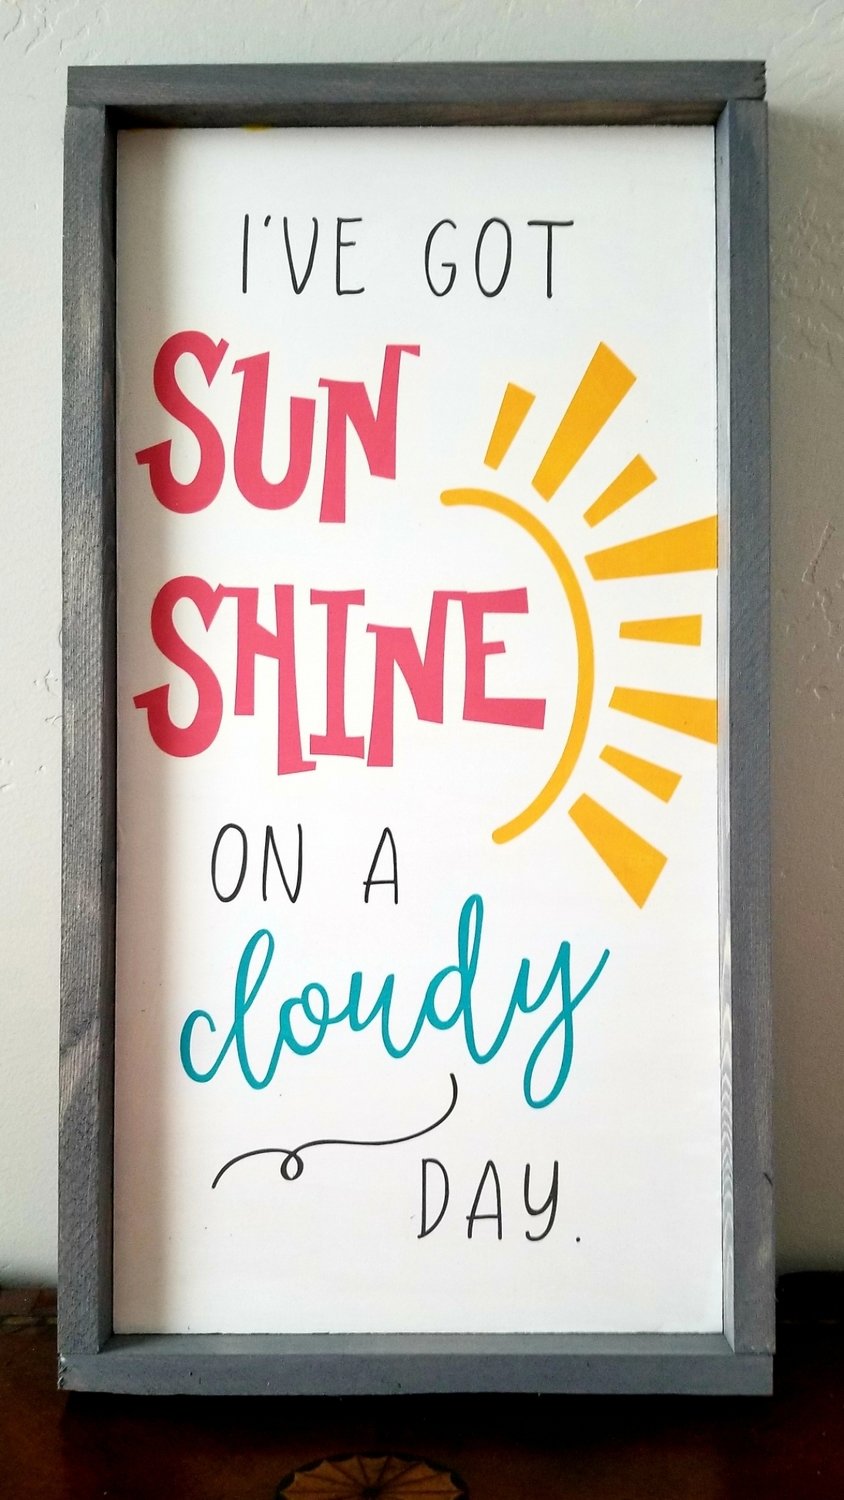 I'VE GOT
SUN
SHINE
ON A
cloudy
DAY.